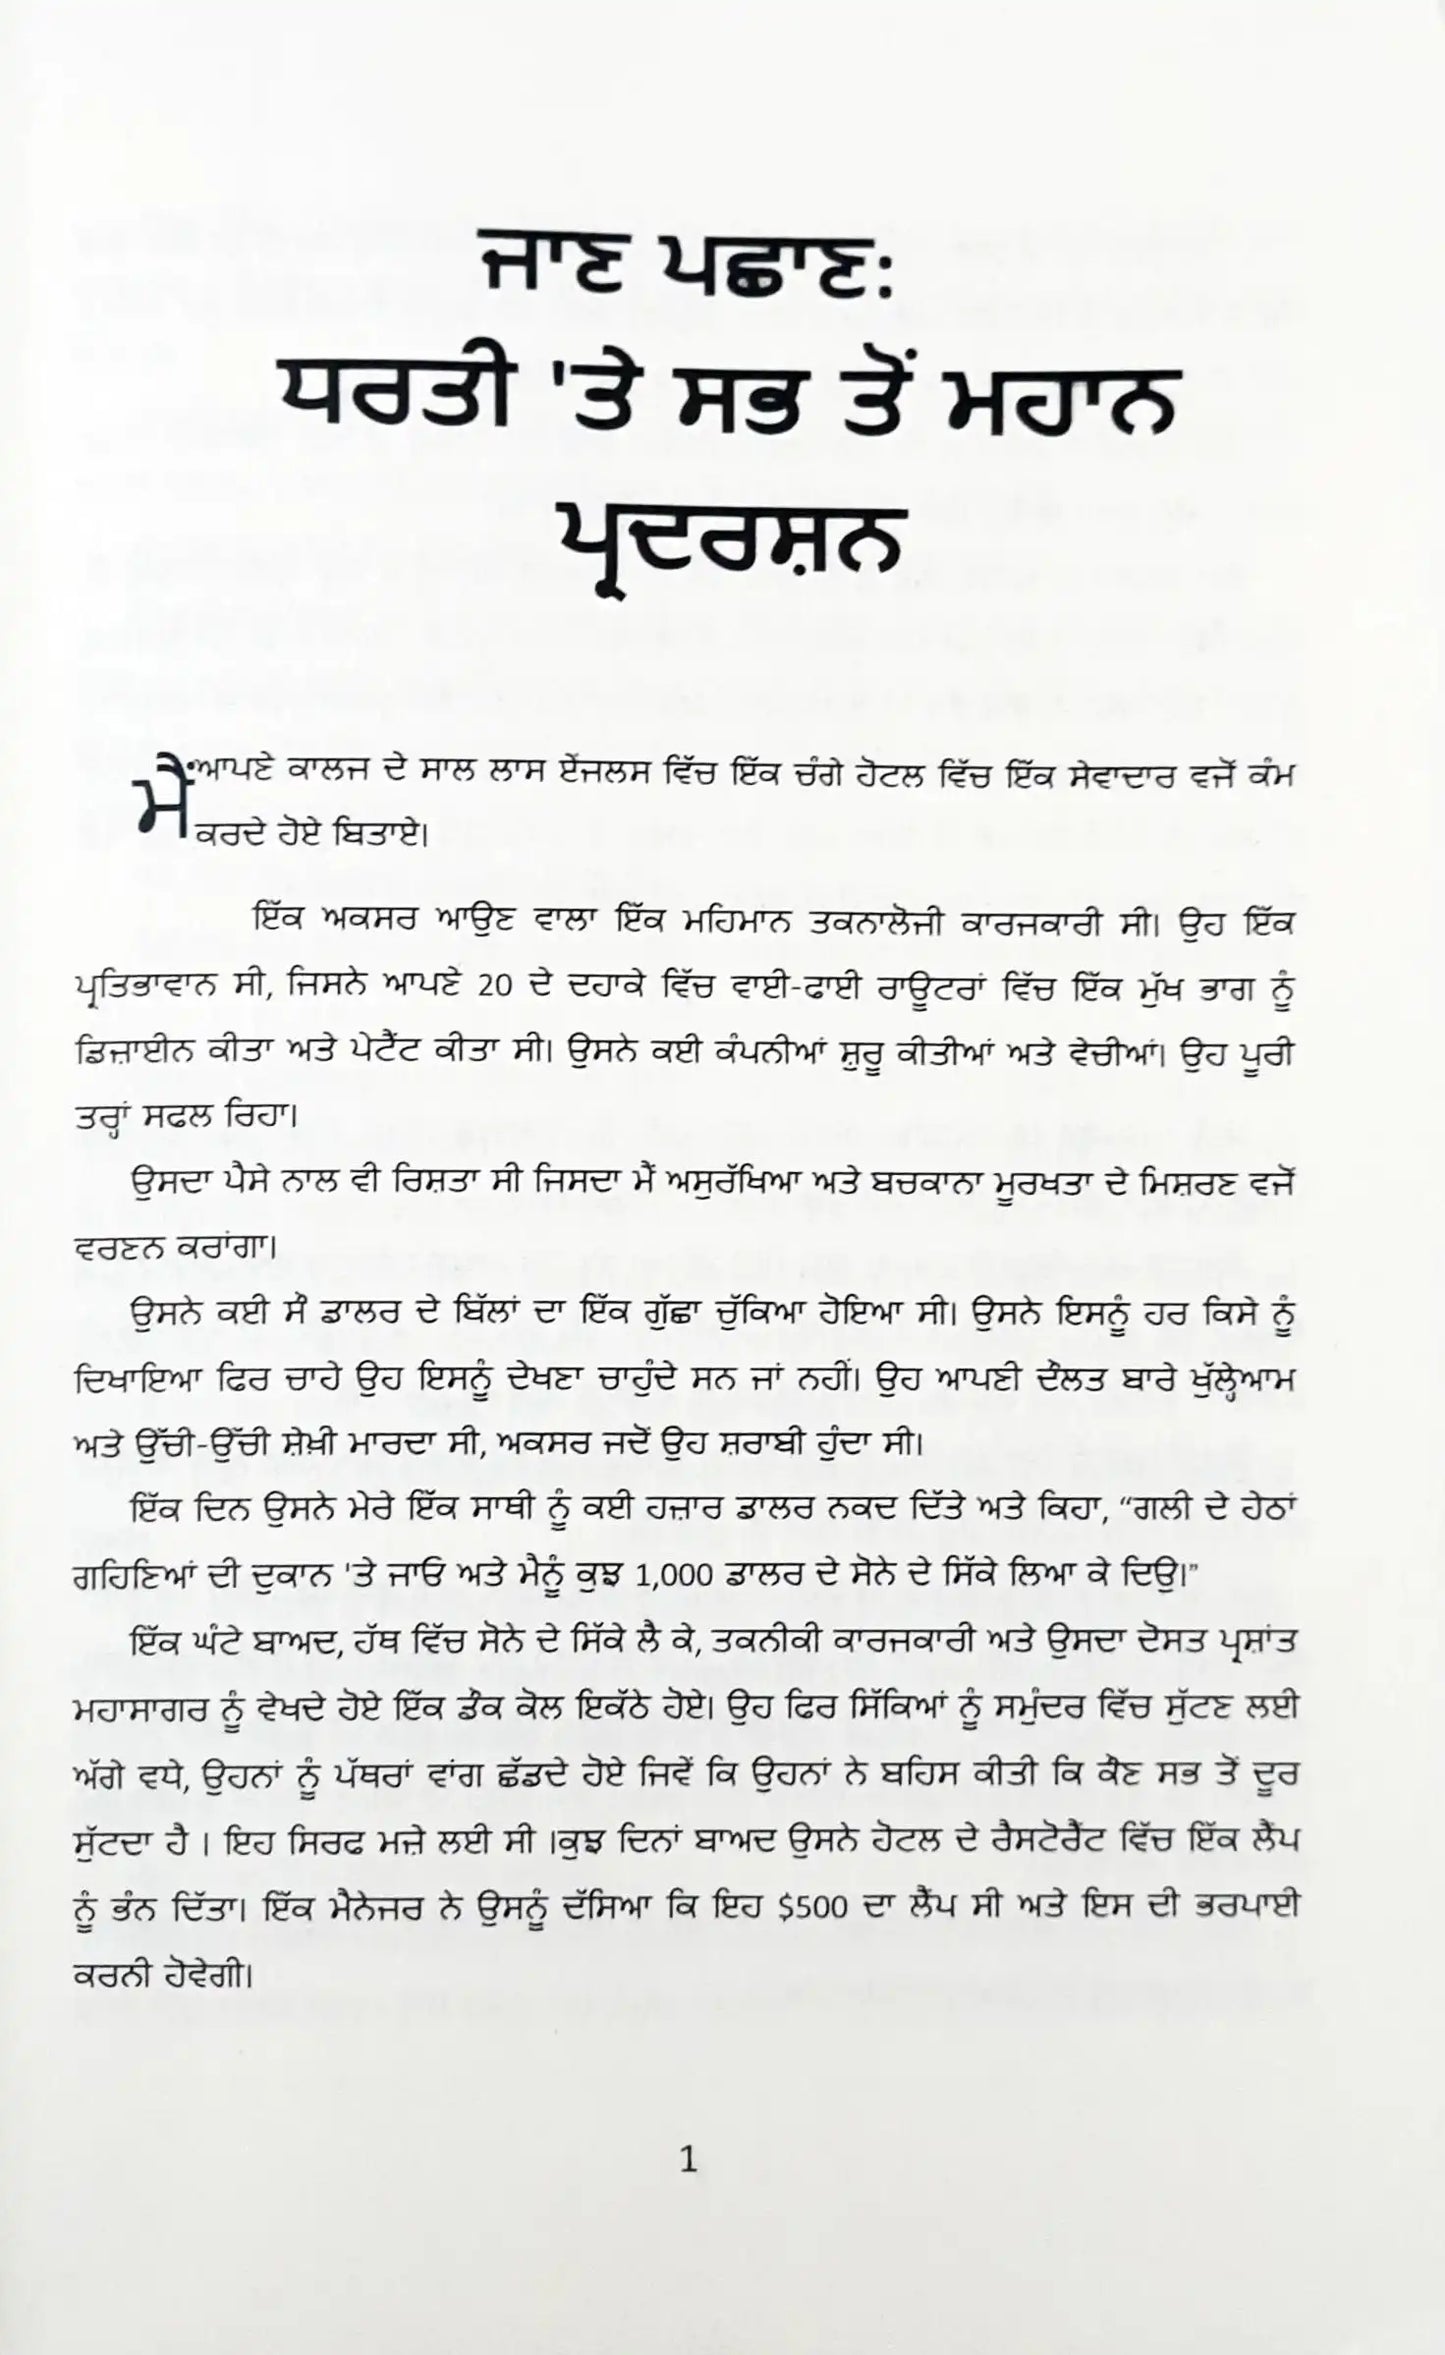 ਜਾਣ ਪਛਾਣ:
ਧਰਤੀ 'ਤੇ ਸਭ ਤੋਂ ਮਹਾਨ
ਪ੍ਰਦਰਸ਼ਨ
ਮੈਂ ਆਪਣੇ ਕਾਲਜ ਦੇ ਸਾਲ ਲਾਸ ਏਂਜਲਸ ਵਿੱਚ ਇੱਕ ਚੰਗੇ ਹੋਟਲ ਵਿੱਚ ਇੱਕ ਸੇਵਾਦਾਰ ਵਜੋਂ ਕੰਮ
ਕਰਦੇ ਹੋਏ ਬਿਤਾਏ।
ਇੱਕ ਅਕਸਰ ਆਉਣ ਵਾਲਾ ਇੱਕ ਮਹਿਮਾਨ ਤਕਨਾਲੋਜੀ ਕਾਰਜਕਾਰੀ ਸੀ। ਉਹ ਇੱਕ
ਪ੍ਰਤਿਭਾਵਾਨ ਸੀ, ਜਿਸਨੇ ਆਪਣੇ 20 ਦੇ ਦਹਾਕੇ ਵਿੱਚ ਵਾਈ-ਫਾਈ ਰਾਊਟਰਾਂ ਵਿੱਚ ਇੱਕ ਮੁੱਖ ਭਾਗ ਨੂੰ
ਡਿਜ਼ਾਈਨ ਕੀਤਾ ਅਤੇ ਪੇਟੈਂਟ ਕੀਤਾ ਸੀ। ਉਸਨੇ ਕਈ ਕੰਪਨੀਆਂ ਸ਼ੁਰੂ ਕੀਤੀਆਂ ਅਤੇ ਵੇਚੀਆਂ। ਉਹ ਪੂਰੀ
ਤਰ੍ਹਾਂ ਸਫਲ ਰਿਹਾ।
ਉਸਦਾ ਪੈਸੇ ਨਾਲ ਵੀ ਰਿਸ਼ਤਾ ਸੀ ਜਿਸਦਾ ਮੈਂ ਅਸੁਰੱਖਿਆ ਅਤੇ ਬਚਕਾਨਾ ਮੂਰਖਤਾ ਦੇ ਮਿਸ਼ਰਣ ਵਜੋਂ
ਵਰਣਨ ਕਰਾਂਗਾ।
ਉਸਨੇ ਕਈ ਸੌ ਡਾਲਰ ਦੇ ਬਿੱਲਾਂ ਦਾ ਇੱਕ ਗੁੱਛਾ ਚੁੱਕਿਆ ਹੋਇਆ ਸੀ। ਉਸਨੇ ਇਸਨੂੰ ਹਰ ਕਿਸੇ ਨੂੰ
ਦਿਖਾਇਆ ਫਿਰ ਚਾਹੇ ਉਹ ਇਸਨੂੰ ਦੇਖਣਾ ਚਾਹੁੰਦੇ ਸਨ ਜਾਂ ਨਹੀਂ। ਉਹ ਆਪਣੀ ਦੌਲਤ ਬਾਰੇ ਖੁੱਲ੍ਹੇਆਮ
ਅਤੇ ਉੱਚੀ-ਉੱਚੀ ਸ਼ੇਖ਼ੀ ਮਾਰਦਾ ਸੀ, ਅਕਸਰ ਜਦੋਂ ਉਹ ਸ਼ਰਾਬੀ ਹੁੰਦਾ ਸੀ।
ਇੱਕ ਦਿਨ ਉਸਨੇ ਮੇਰੇ ਇੱਕ ਸਾਥੀ ਨੂੰ ਕਈ ਹਜ਼ਾਰ ਡਾਲਰ ਨਕਦ ਦਿੱਤੇ ਅਤੇ ਕਿਹਾ, “ਗਲੀ ਦੇ ਹੇਠਾਂ
ਗਹਿਣਿਆਂ ਦੀ ਦੁਕਾਨ 'ਤੇ ਜਾਓ ਅਤੇ ਮੈਨੂੰ ਕੁਝ 1,000 ਡਾਲਰ ਦੇ ਸੋਨੇ ਦੇ ਸਿੱਕੇ ਲਿਆ ਕੇ ਦਿਉ।”
ਇੱਕ ਘੰਟੇ ਬਾਅਦ, ਹੱਥ ਵਿੱਚ ਸੋਨੇ ਦੇ ਸਿੱਕੇ ਲੈ ਕੇ, ਤਕਨੀਕੀ ਕਾਰਜਕਾਰੀ ਅਤੇ ਉਸਦਾ ਦੋਸਤ ਪ੍ਰਸ਼ਾਂਤ
ਮਹਾਸਾਗਰ ਨੂੰ ਵੇਖਦੇ ਹੋਏ ਇੱਕ ਡੌਕ ਕੋਲ ਇਕੱਠੇ ਹੋਏ। ਉਹ ਫਿਰ ਸਿੱਕਿਆਂ ਨੂੰ ਸਮੁੰਦਰ ਵਿੱਚ ਸੁੱਟਣ ਲਈ
ਅੱਗੇ ਵਧੇ, ਉਹਨਾਂ ਨੂੰ ਪੱਥਰਾਂ ਵਾਂਗ ਛੱਡਦੇ ਹੋਏ ਜਿਵੇਂ ਕਿ ਉਹਨਾਂ ਨੇ ਬਹਿਸ ਕੀਤੀ ਕਿ ਕੌਣ ਸਭ ਤੋਂ ਦੂਰ
ਸੁੱਟਦਾ ਹੈ । ਇਹ ਸਿਰਫ ਮਜ਼ੇ ਲਈ ਸੀ ।ਕੁਝ ਦਿਨਾਂ ਬਾਅਦ ਉਸਨੇ ਹੋਟਲ ਦੇ ਰੈਸਟੋਰੈਂਟ ਵਿੱਚ ਇੱਕ ਲੈਂਪ
ਨੂੰ ਭੰਨ ਦਿੱਤਾ। ਇੱਕ ਮੈਨੇਜਰ ਨੇ ਉਸਨੂੰ ਦੱਸਿਆ ਕਿ ਇਹ $500 ਦਾ ਲੈਂਪ ਸੀ ਅਤੇ ਇਸ ਦੀ ਭਰਪਾਈ
ਕਰਨੀ ਹੋਵੇਗੀ।
1